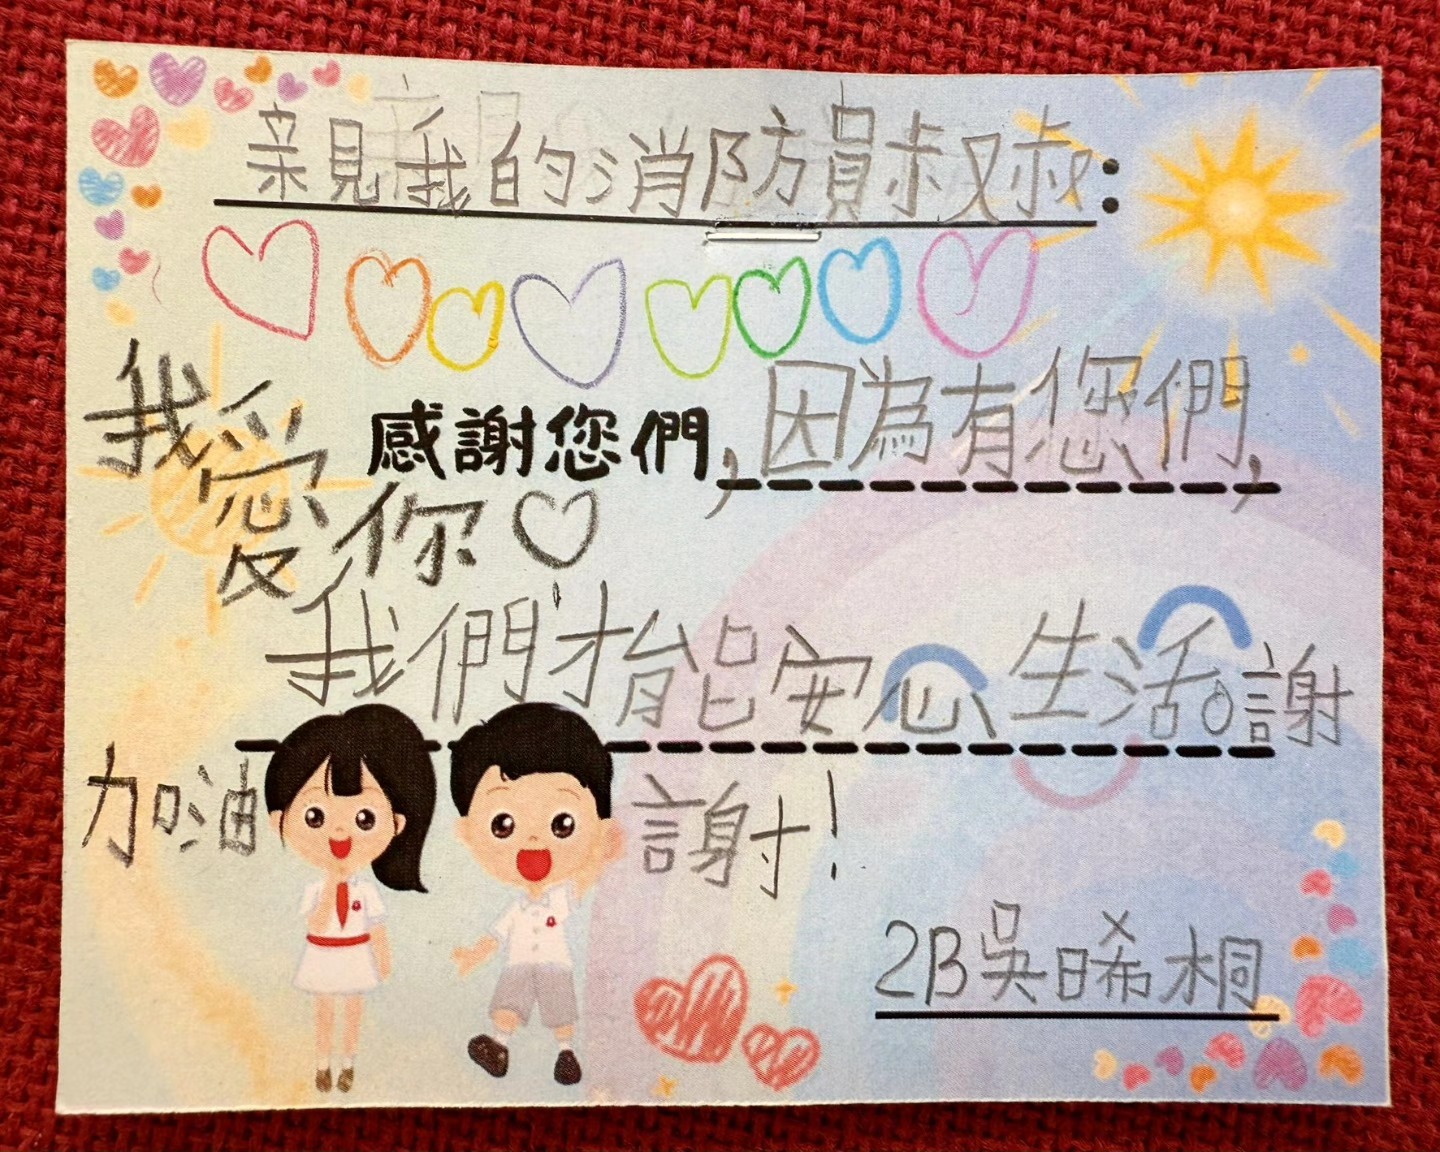 親我的消防員叔叔:
感謝您們,因為有您們,
我愛你
我們才能安心生活。謝
謝!
加油
2B吳晞桐